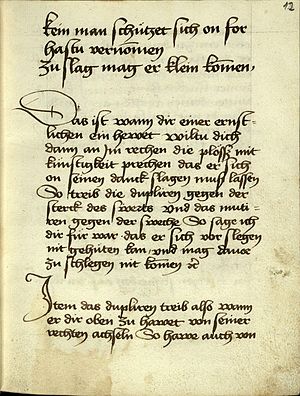 12
kein man schützet sich on for
hastu vernomen
zu slag mag er klein komen,
Das ist wann dir einer ernst-
lichen ein hewet wiltu dich
dann an Im rechen die plösß mit
kunstigkeit prechen das er sich
on seinen danck slagen muß lassen
So treib die dupliren gegen der
sterck des swerts vnd das muti-
ren gegen der sweche So sage ich
dir für war das er sich vor slegen
nit gehüten kan vnd mag dauor
zu schlegen nit komen
Item das dupliren treib also wann
er dir oben zu hawet von seiner
rechten achseln So hawe auch von